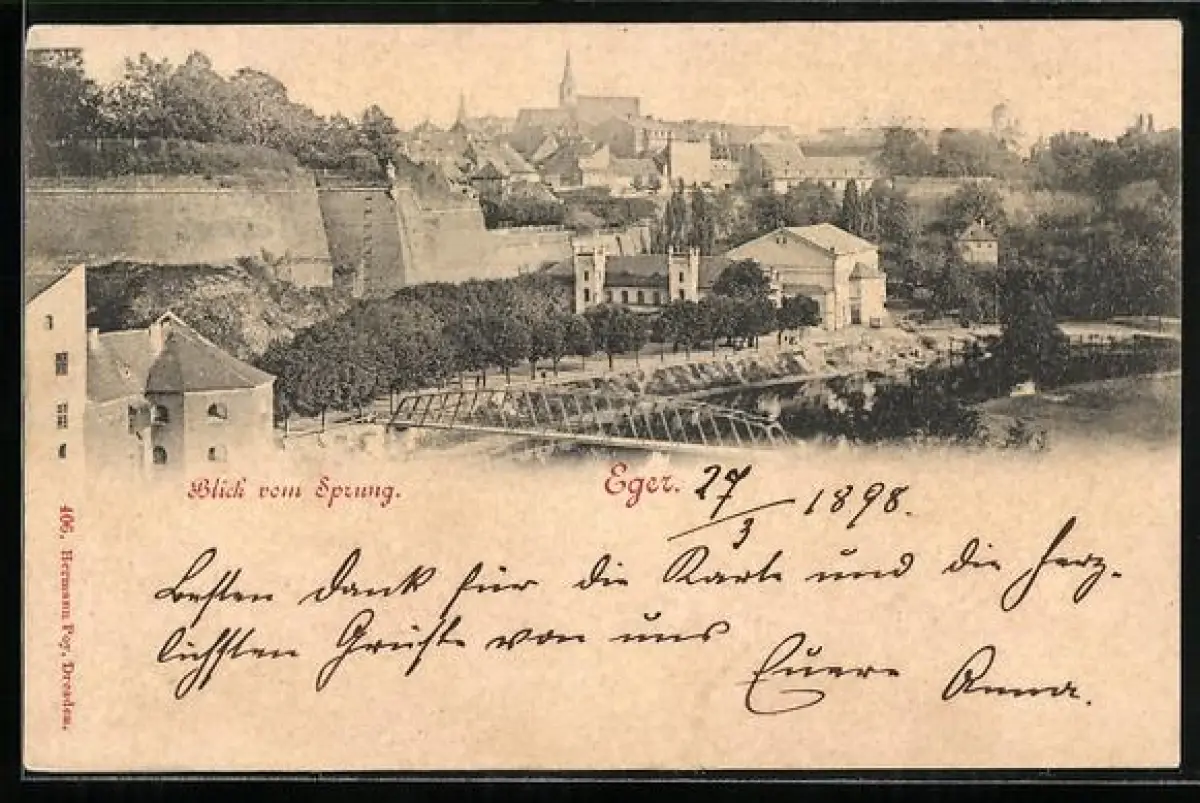 Blick vom Sprung.
Eger. 27/3 1898.
Besten Dank für die Karte und die herz-
lichsten Grüße von uns
Euere Anna.
406, Hermann Poy, Dresden.